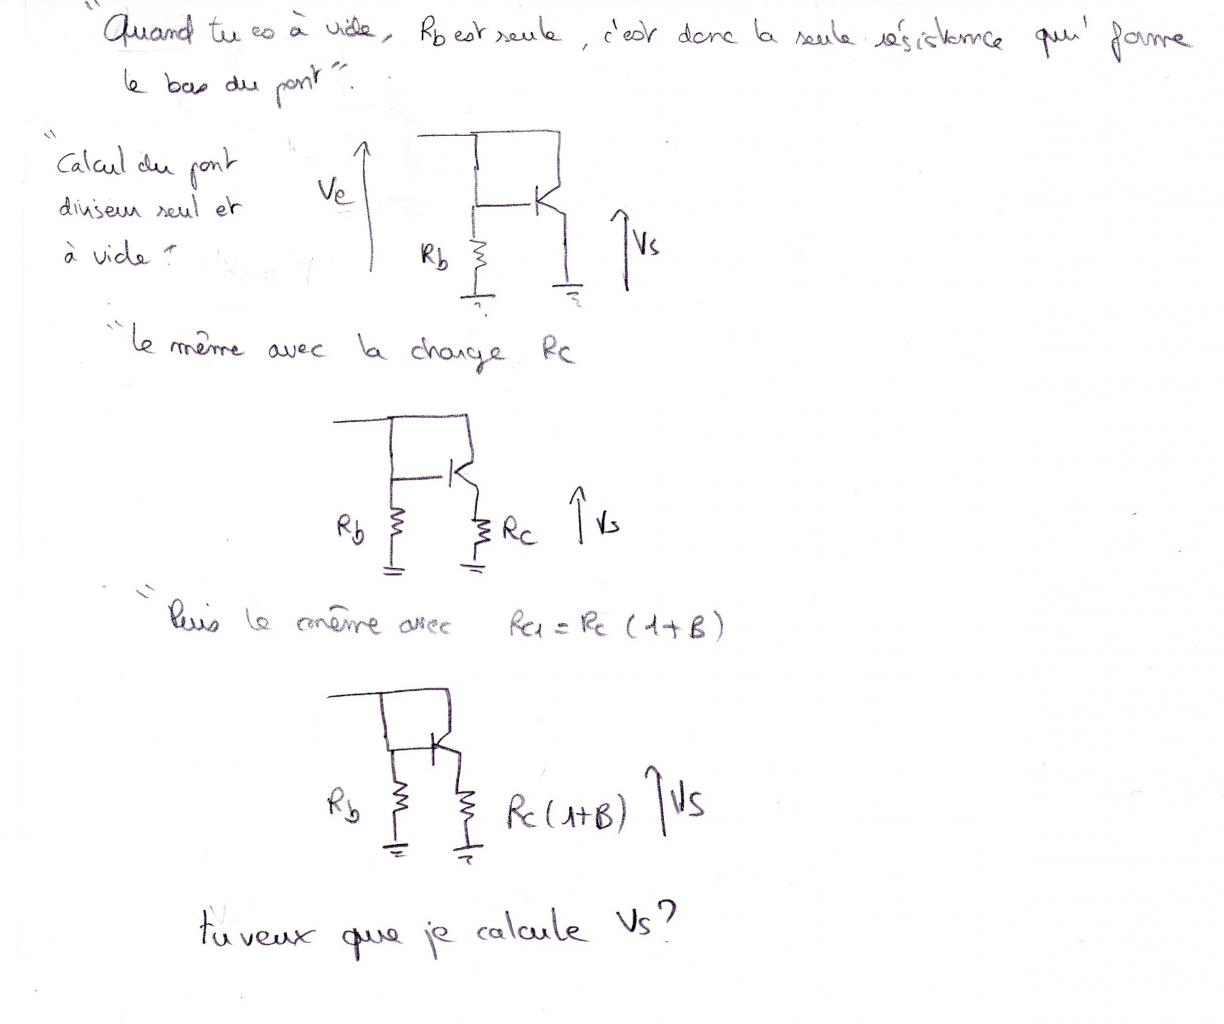 "Quand tu es à vide, Rb est seule, c'est donc la seule résistance qui forme
le bas du pont".
"Calcul du pont
diviseur seul et
à vide"
Ve
Rb
Vs
"le même avec la charge Rc
Rb
Rc
Vs
"Puis le même avec Rc1 = Rc (1+B)
Rb
Rc(1+B)
Vs
tu veux que je calcule Vs?